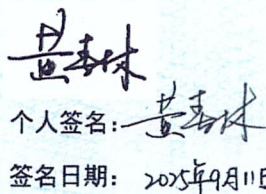 黄春林
个人签名：黄春林
签名日期：2025年9月11日